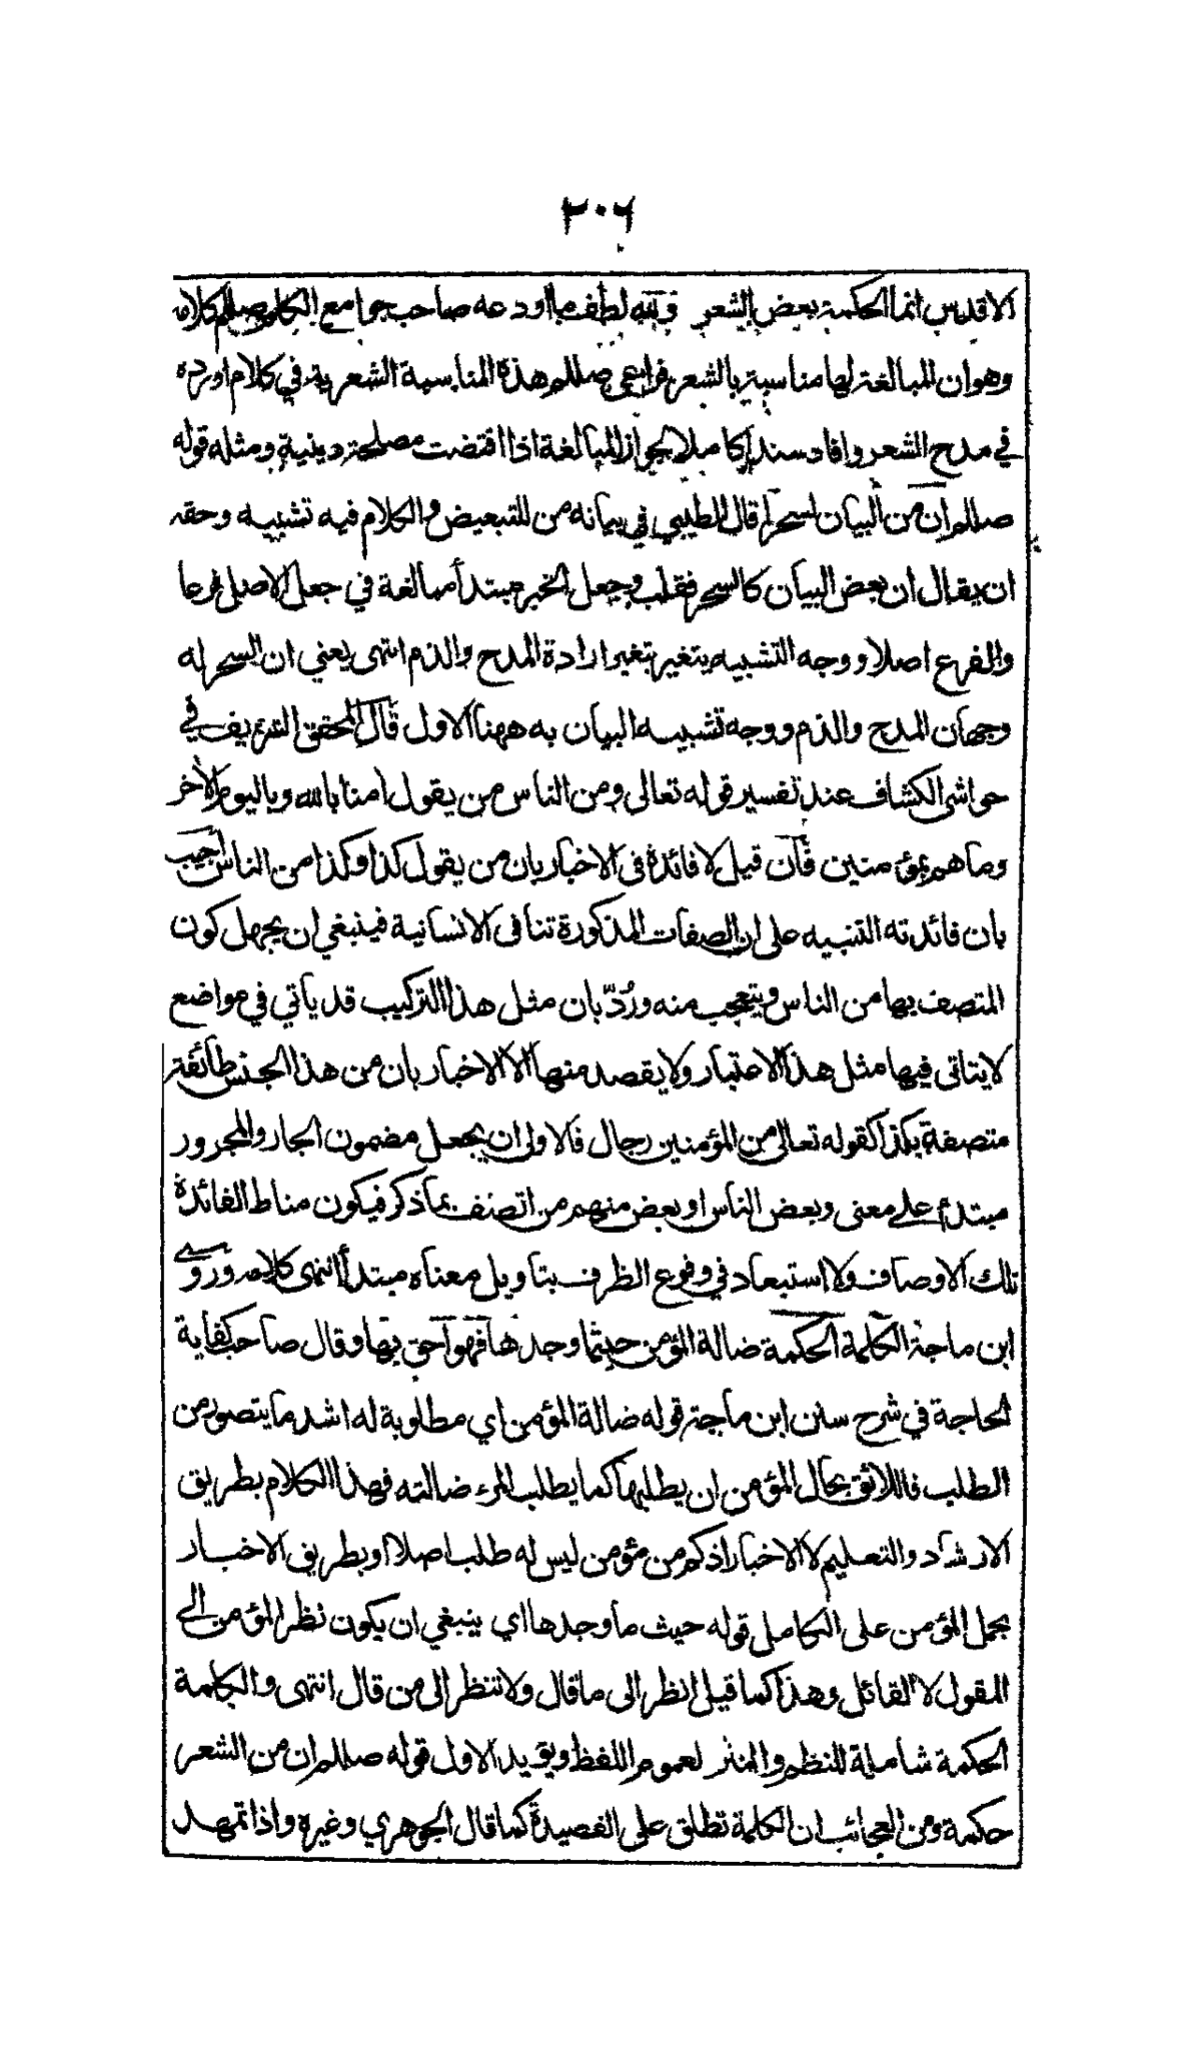 ٢٠٦
الاقدس انما الحكمة بعض الشعر ولله لطف ما اودعه صاحب جوامع الكلم صللم كلامه
وهو ان المبالغة لها مناسبة بالشعر فراعى صللم هذه المناسبة الشعرية في كلام اورده
في مدح الشعر وافاد سندا كاملا لجواز المبالغة اذا اقتضت مصلحة دينية ومثله قوله
صللم ان من البيان لسحرا قال الطيبي في بيانه من للتبعيض والكلام فيه تشبيه وحقه
ان يقال ان بعض البيان كالسحر فقلب وجعل الخبر مبتدأ مبالغة في جعل الاصل فرعا
والفرع اصلا ووجه التشبيه يتغير بتغير ارادة المدح والذم انتهى يعني ان السحر له
وجهان المدح والذم ووجه تشبيه البيان به ههنا الاول قال المحقق الشريف في
حواشى الكشاف عند تفسير قوله تعالى ومن الناس من يقول امنا بالله وباليوم الأخر
وما هم بمؤمنين فان قيل لا فائدة فى الاخبار بان من يقول كذا وكذا من الناس اجيب
بان فائدته التنبيه على ان الصفات المذكورة تنافى الانسانية فينبغي ان يجهل كون
المتصف بها من الناس ويتعجب منه ورُدّ بان مثل هذا التركيب قد يأتي في مواضع
لا يتاتى فيها مثل هذا الاعتبار ولا يقصد منها الا الاخبار بان من هذا الجنس طائفة
متصفة بكذا كقوله تعالى من المؤمنين رجال فالاولى ان يجعل مضمون الجار والمجرور
مبتدأ على معنى وبعض الناس او بعض منهم من اتصف بما ذكر فيكون مناط الفائدة
تلك الاوصاف ولا استبعاد في وقوع الظرف بتاويل معناه مبتدأ انتهى كلامه وروى
ابن ماجة الكلمة الحكمة ضالة المؤمن حيثما وجدها فهو احق بها وقال صاحب كفاية
الحاجة في شرح سنن ابن ماجة قوله ضالة المؤمن اي مطلوبة له اشد ما يتصور من
الطلب فاللائق بحال المؤمن ان يطلبها كما يطلب المرء ضالته فهذا الكلام بطريق
الارشاد والتعليم لا الاخبار اذ كم من مؤمن ليس له طلب اصلا او بطريق الاخبار
بحمل المؤمن على الكامل قوله حيث ما وجدها اي ينبغي ان يكون نظر المؤمن الى
المقول لا القائل وهذا كما قيل انظر الى ما قال ولا تنظر الى من قال انتهى والكلمة
الحكمة شاملة للنظم والنثر لعموم اللفظ ويؤيد الاول قوله صللم ان من الشعر
حكمة ومن العجائب ان الكلمة تطلق على القصيدة كما قال الجوهري وغيره واذا تمهد